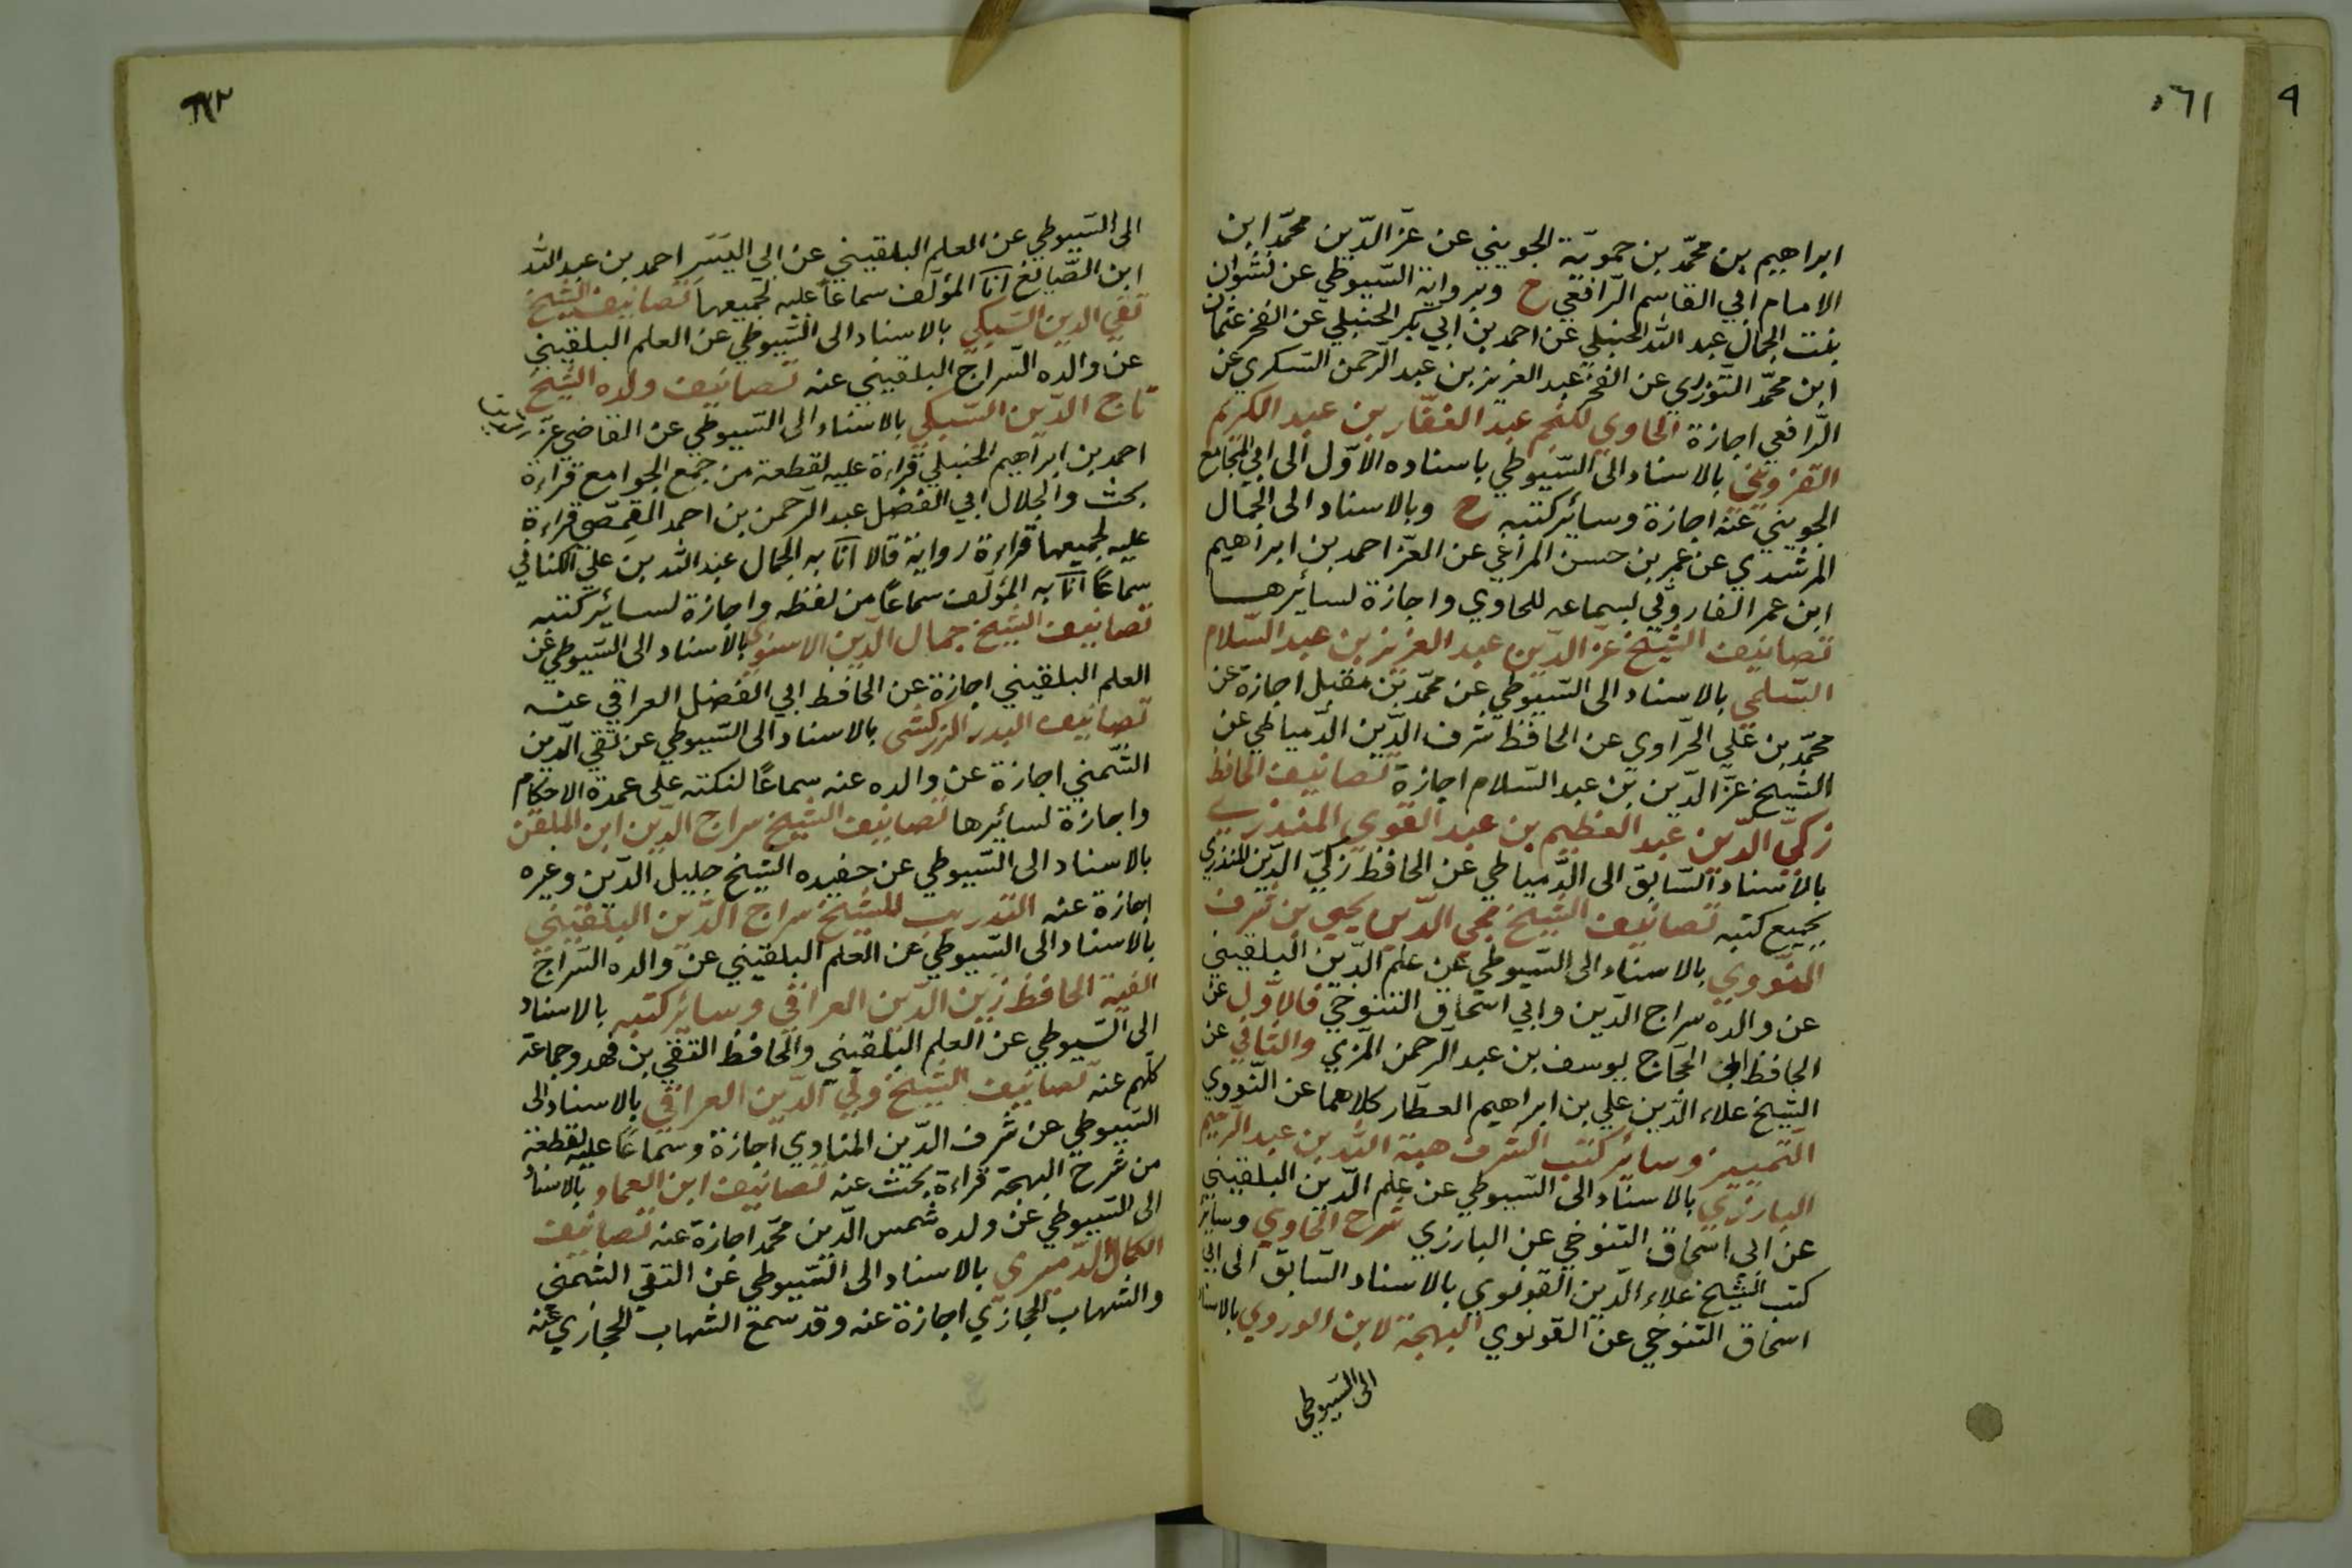 ٥٦١
٩
ابراهيم بن محمّد بن حمويّة الجويني عن عزّ الدّين محمّد ابن
الامام ابي القاسم الرّافعي ح وبرواية السّيوطي عن نشوان
بنت الجمال عبد الله الحنبلي عن احمد بن ابي بكر الحنبلي عن الفخر عثمان
ابن محمّد التّوزري عن الفخر عبد العزيز بن عبد الرّحمن السّكري عن
الرّافعي اجازة الحاوي للنجم عبد الغفّار بن عبد الكريم
القزويني بالاسناد الى السّيوطي باسناده الاوّل الى ابي المجامع
الجويني عنه اجازة وسائر كتبه ح وبالاسناد الى الجمال
المرشدي عن عمر بن حسن المراغي عن العزّ احمد بن ابراهيم
ابن عمر الفاروثي لسماعه للحاوي واجازة لسائرها
تصانيف الشّيخ عزّ الدّين عبد العزيز بن عبد السّلام
السّلمي بالاسناد الى السّيوطي عن محمّد بن مقبل اجازة عن
محمّد بن علي الحّراوي عن الحافظ شرف الدّين الدّمياطي عن
الشّيخ عزّ الدّين بن عبد السّلام اجازة تصانيف الحافظ
زكيّ الدّين عبد العظيم بن عبد القوي المنذري
بالاسناد السّابق الى الدّمياطي عن الحافظ زكيّ الدّين المنذري
بجميع كتبه تصانيف الشّيخ محي الدّين يحيى بن شرف
النّووي بالاسناد الى السّيوطي عن علم الدّين البلقيني
عن والده سراج الدّين وابي اسحاق التنوخي فالاوّل عن
الحافظ ابي الحجّاج يوسف بن عبد الرّحمن المزي والثاني عن
الشّيخ علاء الدّين علي بن ابراهيم العطّار كلاهما عن النّووي
التّمييز وسائر كتب الشرف هبة الله بن عبد الرّحيم
البارزي بالاسناد الى السّيوطي عن علم الدّين البلقيني
عن ابي اسحاق التّنوخي عن البارزي شرح الحاوي وسائر
كتب الشّيخ علاء الدّين القونوي بالاسناد السّابق الى ابي
اسحاق التّنوخي عن القونوي البهجة لابن الوردي بالاسناد
الى السّيوطي
الى السّيوطي عن العلم البلقيني عن ابي اليَسَر احمد بن عبد الله
ابن الصّايغ انا المؤلّف سماعًا عليه لجميعها تصانيف الشّيخ
تقي الدين السّبكي بالاسناد الى السّيوطي عن العلم البلقيني
عن والده السّراج البلقيني عنه تصانيف ولده الشّيخ
تاج الدّين السّبكي بالاسناد الى السّيوطي عن القاضي عزّ
احمد بن ابراهيم الحنبلي قراءة عليه لقطعة من جمع الجوامع قراءة
بحث والجلال ابي الفضل عبد الرّحمن بن احمد القمّصي قراءة
عليه لجميعها قراءة رواية قالا انا به الجمال عبد الله بن علي الكناني
سماعًا انا به المؤلّف سماعًا من لفظه واجازة لسائر كتبه
تصانيف الشّيخ جمال الدّين الاسنوي بالاسناد الى السّيوطي عن
العلم البلقيني اجازة عن الحافظ ابي الفضل العراقي عنه
تصانيف البدر الزركشي بالاسناد الى السّيوطي عن تقي الدّين
الشّمني اجازة عن والده عنه سماعًا لنكته على عمدة الاحكام
واجازة لسائرها تصانيف الشّيخ سراج الدّين ابن الملقّن
بالاسناد الى السّيوطي عن حفيده الشّيخ جليل الدّين وغيره
اجازة عنه التدريب للشّيخ سراج الدّين البلقيني
بالاسناد الى السّيوطي عن العلم البلقيني عن والده السّراج
الفية الحافظ زين الدّين العراقي وسائر كتبه بالاسناد
الى السّيوطي عن العلم البلقيني والحافظ التقي بن فهد وجماعة
كلّهم عنه تصانيف الشّيخ وليّ الدّين العراقي بالاسناد الى
السّيوطي عن شرف الدّين المناوي اجازة وسماعًا عليه لقطعة
من شرح البهجة قراءة بحث عنه تصانيف ابن العماد بالاسناد
الى السّيوطي عن ولده شمس الدّين محمّد اجازة عنه تصانيف
الكمال الدّميري بالاسناد الى السّيوطي عن التقي الشّمني
والشهاب الحجازي اجازة عنه وقد سمع الشهاب الحجازي عنه